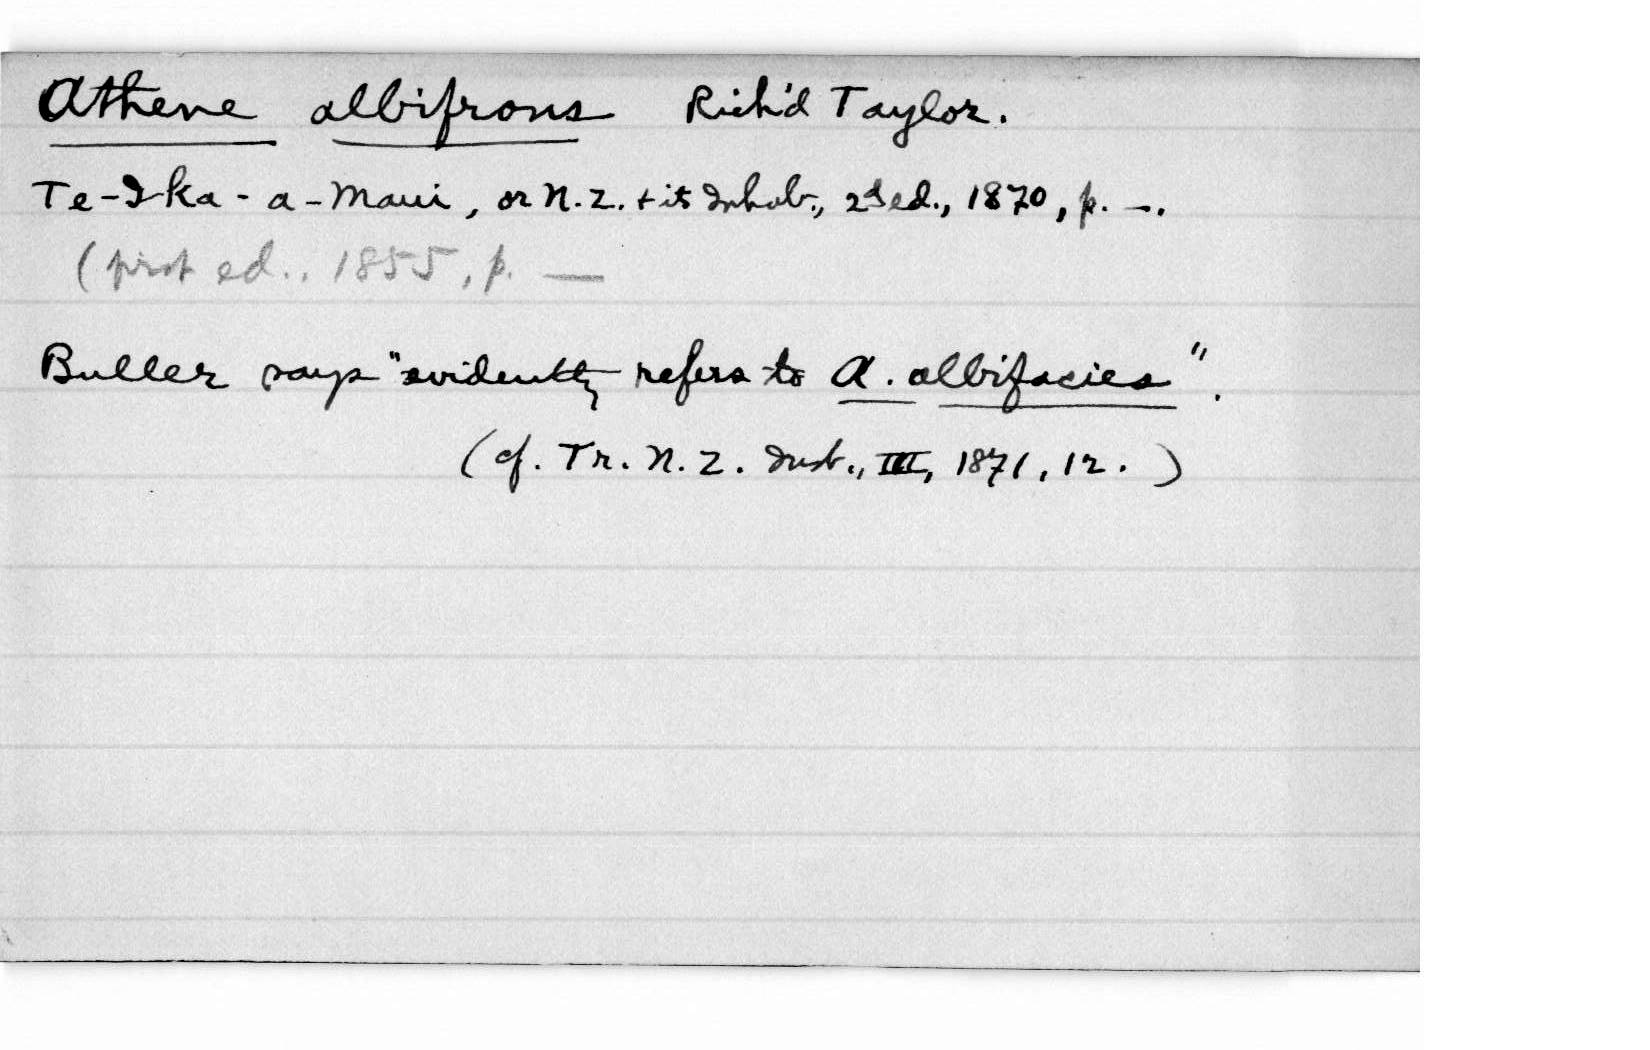 Athene albifrons Rich'd Taylor.
Te-Ika-a-Maui, or N.Z. + its Inhab., 2d ed., 1870, p. —.
(first ed., 1855, p. —
Buller says "evidently refers to A. albifacies".
(cf. Tr. N. Z. Inst., III, 1871, 12.)